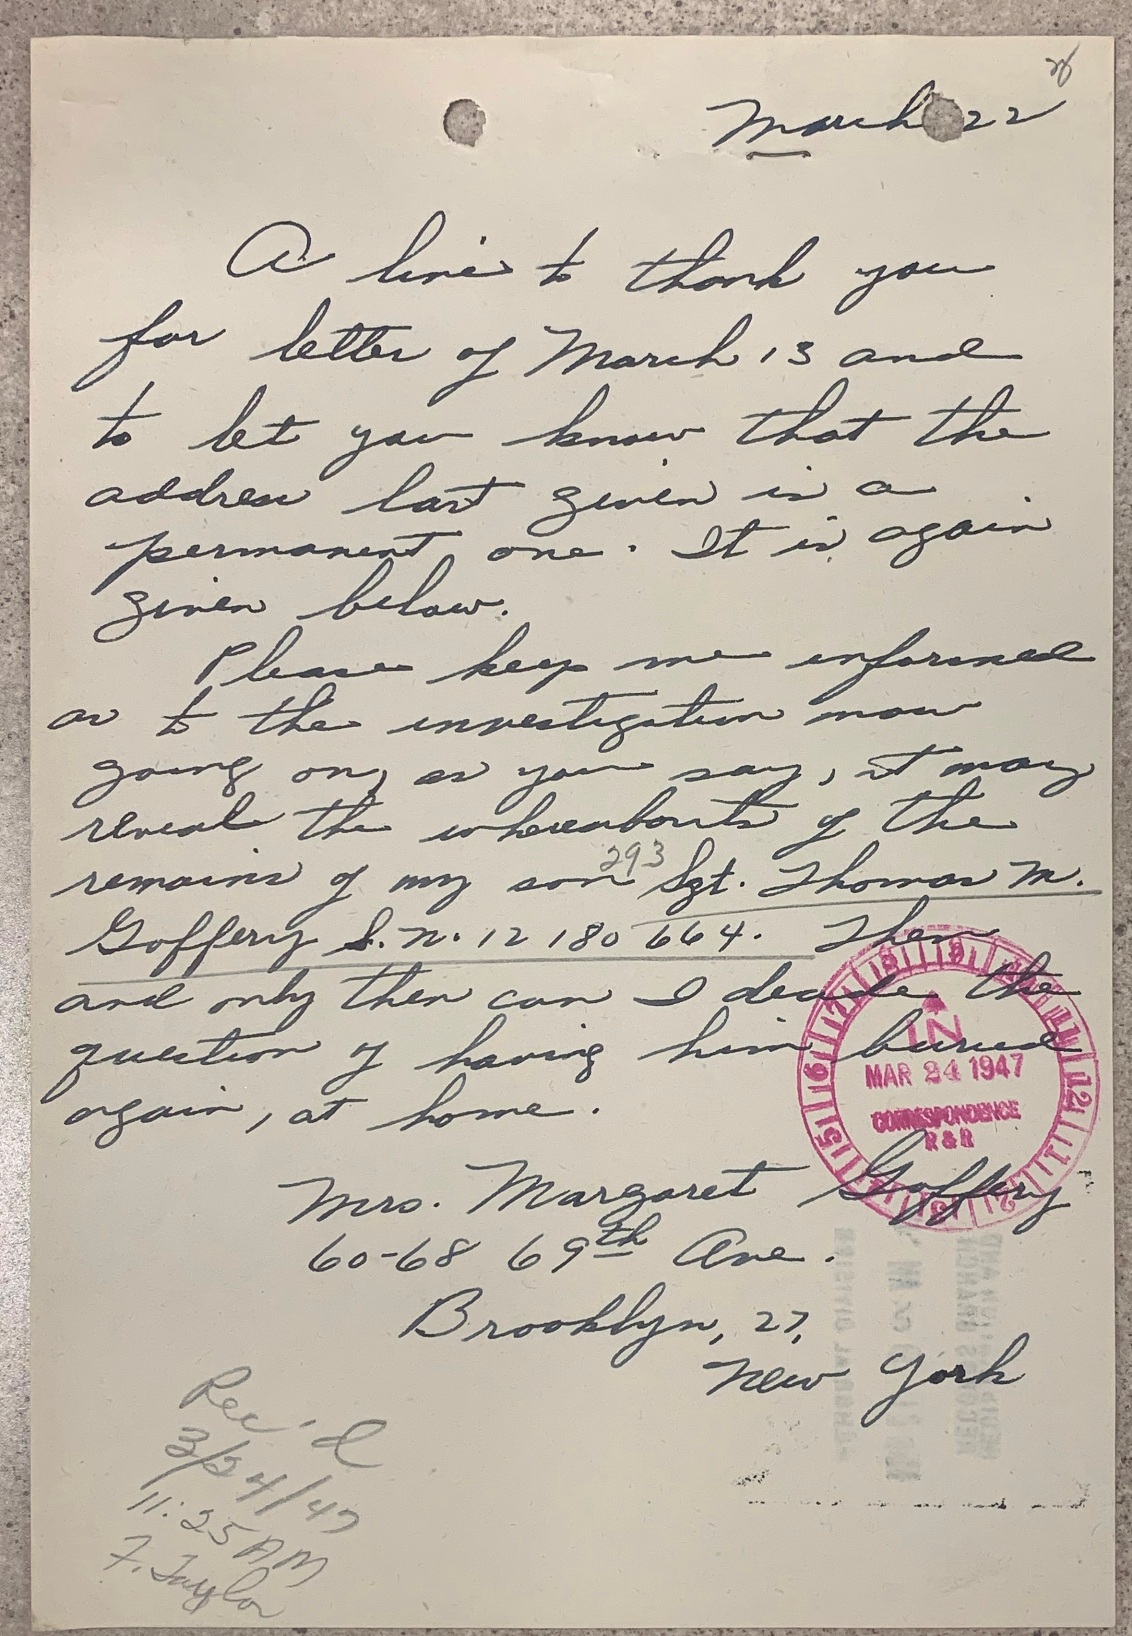 March 22
A line to thank you
for letter of March 13 and
to let you know that the
address last given is a
permanent one. It is again
given below.
Please keep me informed
as to the investigation now
going on, as you say, it may
reveal the whereabouts of the
remains of my son Sgt. Thomas M.
293
Goffery S.N. 12 180 664. Then
and only then can I decide the
question of having him buried
again, at home.
Mrs. Margaret Goffery
60-68 69th Ave.
Brooklyn, 27,
New York
IN
MAR 24 1947
CORRESPONDENCE
R & R
Rec'd
3/24/47
11:25 AM
F. Taylor